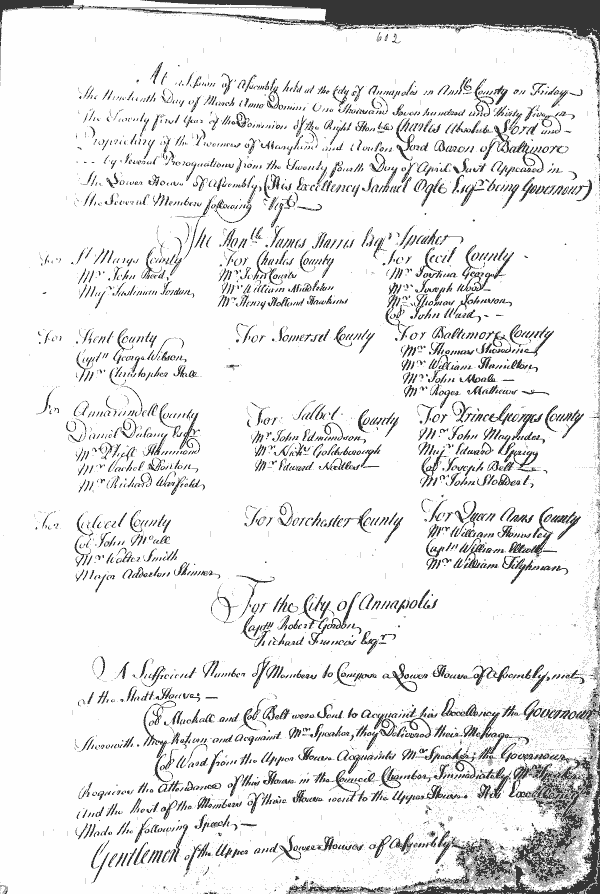 602
At a Session of Assembly held at the City of Annapolis in Annll County on Friday
The Nineteenth Day of March Anno Domini One thousand Seven hundred and thirty five in
The Twenty first Year of the Dominion of the Right Honble Charles Absolute Lord and
Proprietary of the Provinces of Maryland and Avalon Lord Baron of Baltimore
by Several Prorogations from the Twenty fourth Day of April Last Appeared in
The Lower House of Assembly, (His Excellency Samuel Ogle Esqr being Governour)
The Several Members following Vizt
The Honble James Harris Esqr Speaker
For St Marys County
Mr John Read
Majr Justinian Jordan
For Charles County
Mr John Courts
Mr William Middleton
Mr Henry Holland Hawkins
For Cecil County
Mr Joshua George
Mr Joseph Wood
Mr Thomas Johnson
Col John Ward
For Kent County
Captn George Wilson
Mr Christopher Hall
For Somerset County
For Baltimore County
Mr Thomas Sheredine
Mr William Hamilton
Mr John Moale
Mr Roger Mathews
For Annarundell County
Daniel Dulany Esqr
Mr Phill Hammond
Mr Vachel Denton
Mr Richard Warfield
For Talbot County
Mr John Edmondson
Mr Nichs Goldsborough
Mr Edward Needles
For Prince Georges County
Mr John Magruder
Majr Edward Sprigg
Col Joseph Belt
Mr John Stoddert
For Calvert County
Col John Mackall
Mr Walter Smith
Major Adderton Skinner
For Dorchester County
For Queen Anns County
Mr William Hemsley
Captn William Elliott
Mr William Tilghman
For the City of Annapolis
Captn Robert Gordon
Richard Francis Esqr
A Sufficient Number of Members to Compose a Lower House of Assembly, met
at the Stadt House,
Col Mackall and Col Belt were Sent to Acquaint his Excellency the Governour
therewith, they Return and Acquaint Mr Speaker, they Delivered their Message
Col Ward from the Upper House Acquaints Mr Speaker, the Governour
Requires the Attendance of this House in the Council Chamber, Immediately, Mr Speaker
And the Rest of the Members of this House went to the Upper House. His Excellency
Made the following Speech,
Gentlemen of the Upper and Lower Houses of Assembly